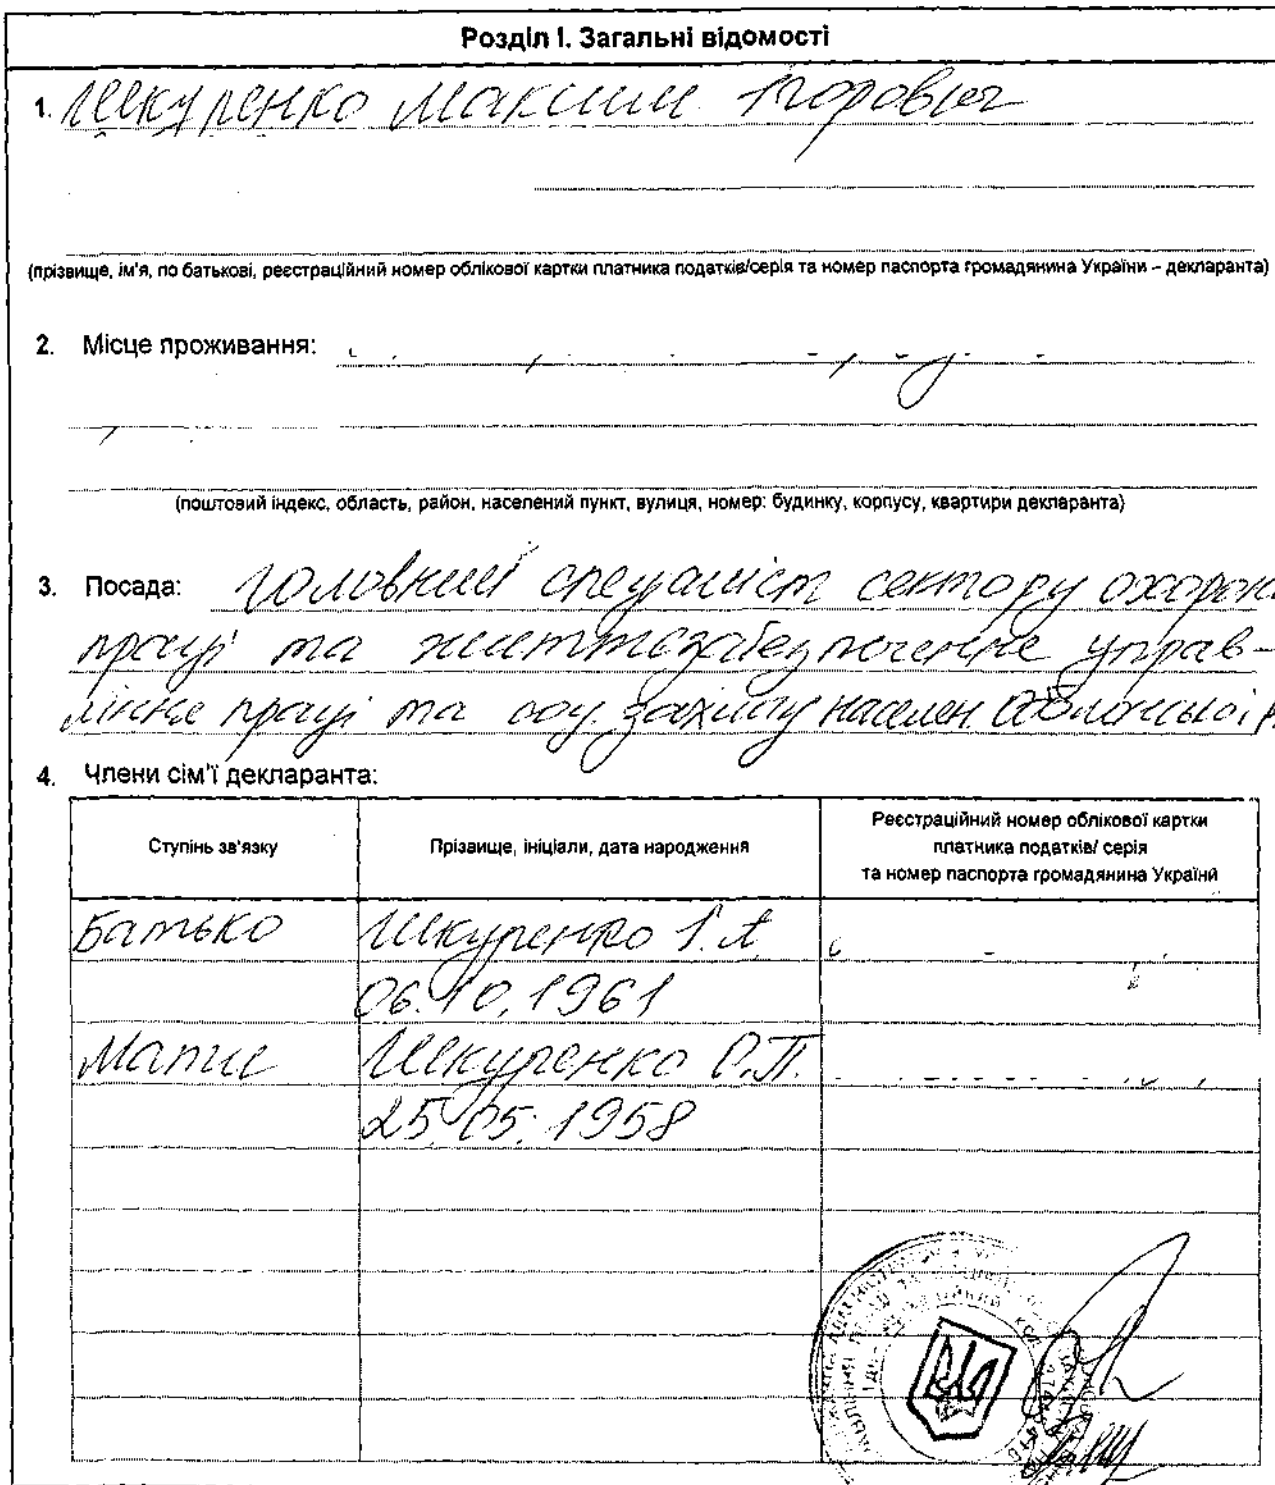 Розділ І. Загальні відомості
1. Шкуренко Максим Ігорович
(прізвище, ім'я, по батькові, реєстраційний номер облікової картки платника податків/серія та номер паспорта громадянина України – декларанта)
2. Місце проживання:
(поштовий індекс, область, район, населений пункт, вулиця, номер: будинку, корпусу, квартири декларанта)
3. Посада: головний спеціаліст сектору охорони
праці та життєзабезпечення управ-
ління праці та соц. захисту населен. Оболонської
4. Члени сім'ї декларанта:
Ступінь зв'язку
Прізвище, ініціали, дата народження
Реєстраційний номер облікової картки
платника податків/ серія
та номер паспорта громадянина України
Батько
Шкуренко І. А.
06.10.1961
Мати
Шкуренко О.П.
25.05.1958